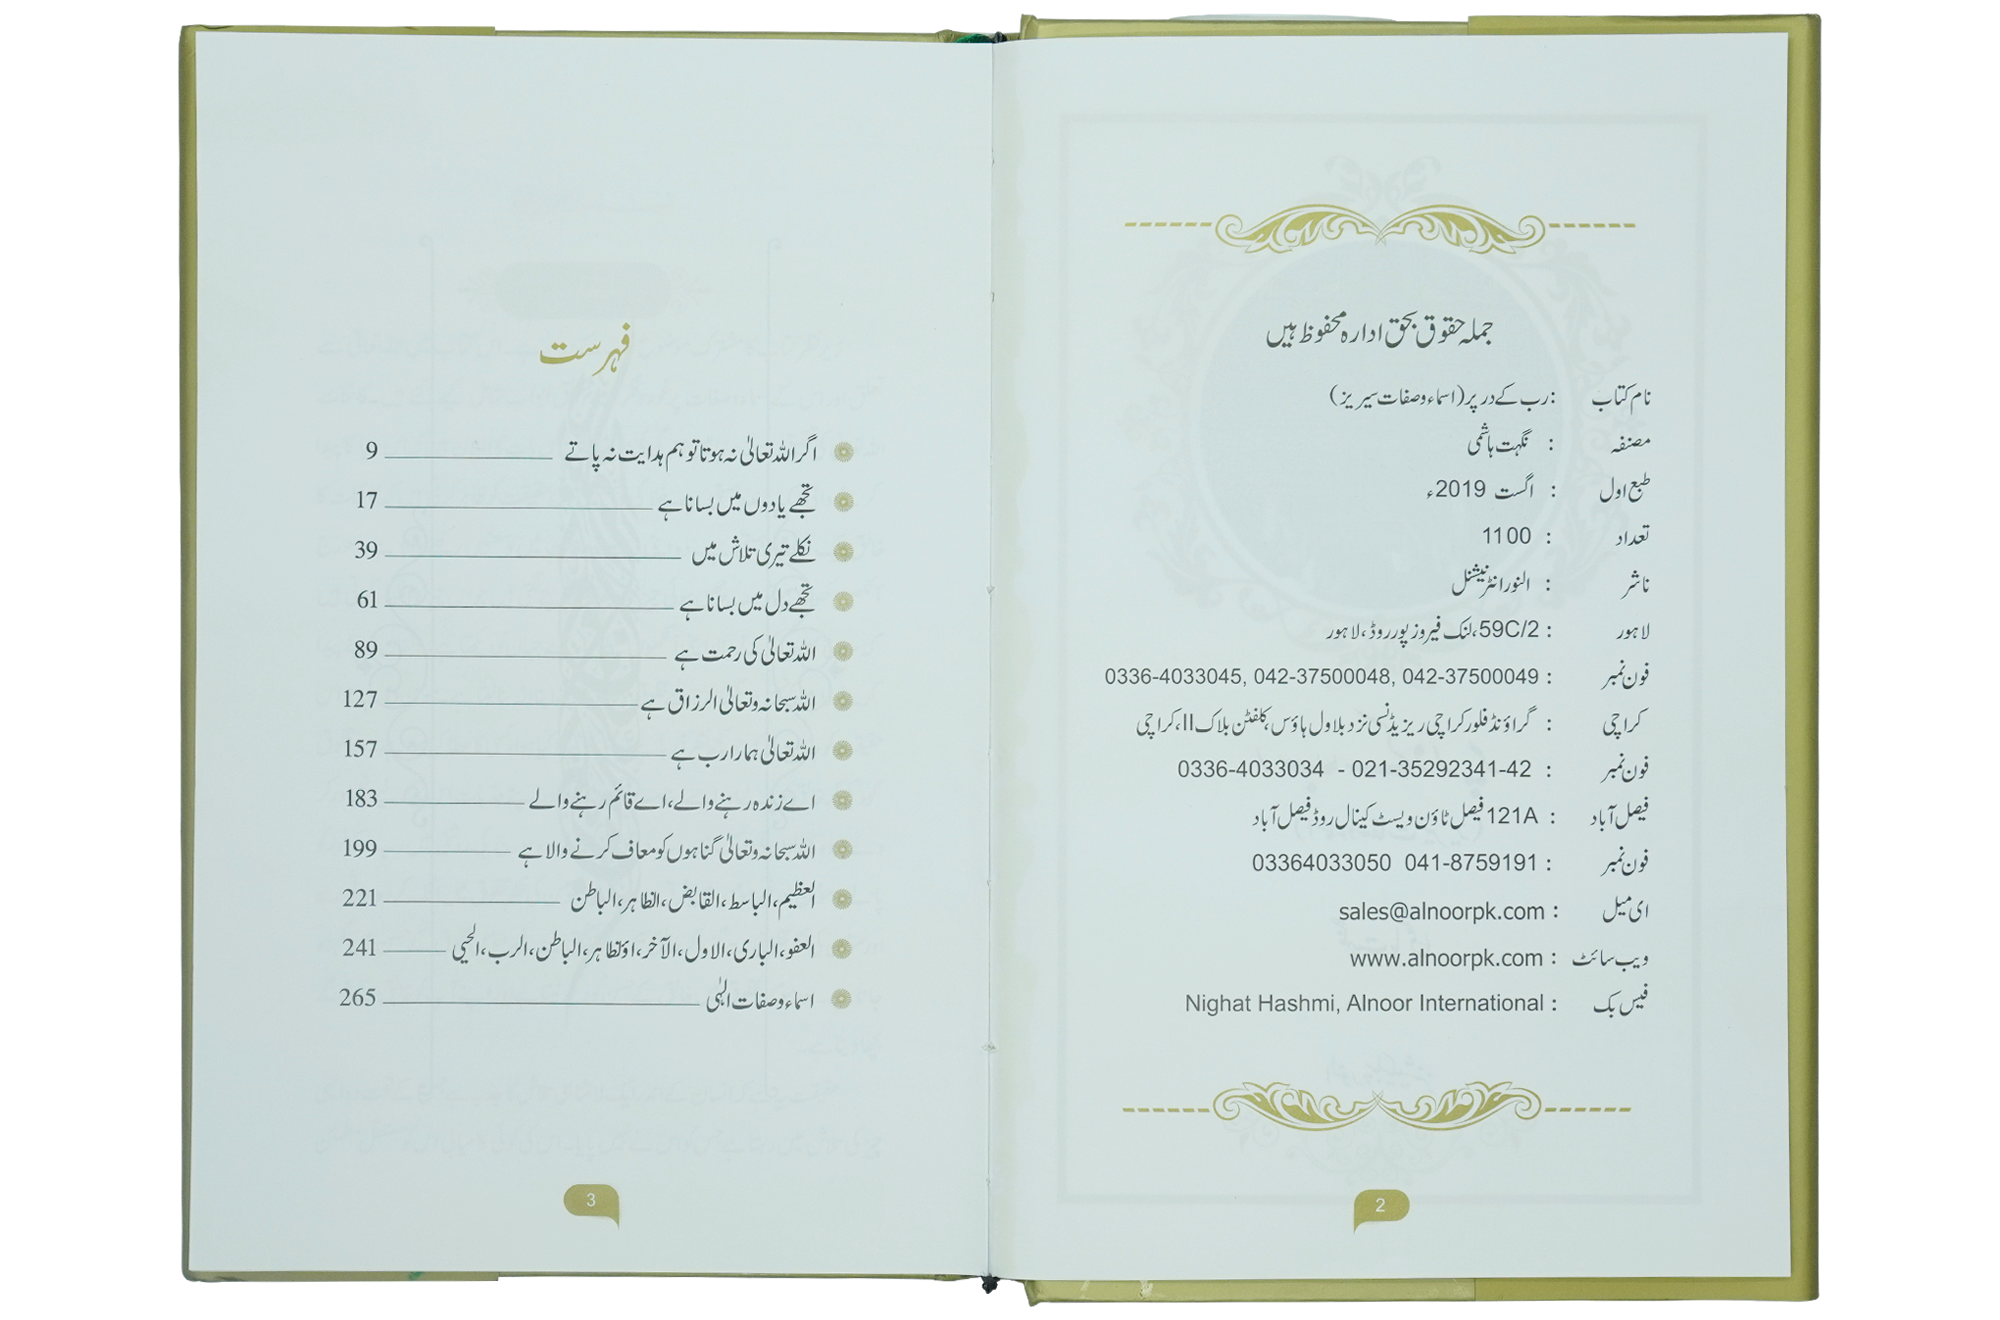 جملہ حقوق بحق ادارہ محفوظ ہیں
نام کتاب : رب کے در پر (اسماء و صفات سیریز)
مصنفہ : نگہت ہاشمی
طبع اول : اگست 2019ء
تعداد : 1100
ناشر : النور انٹرنیشنل
لاہور : 59C/2، لنک فیروز پور روڈ، لاہور
فون نمبر : 0336-4033045, 042-37500048, 042-37500049
کراچی : گراؤنڈ فلور کراچی ریزیڈنسی نزد بلاول ہاؤس، کلفٹن بلاک II، کراچی
فون نمبر : 0336-4033034 - 021-35292341-42
فیصل آباد : 121A فیصل ٹاؤن ویسٹ کینال روڈ فیصل آباد
فون نمبر : 03364033050 041-8759191
ای میل : sales@alnoorpk.com
ویب سائٹ : www.alnoorpk.com
فیس بک : Nighat Hashmi, Alnoor International
2
فہرست
اگر اللہ تعالیٰ نہ ہوتا تو ہم ہدایت نہ پاتے 9
تجھے یادوں میں بسانا ہے 17
نکلے تیری تلاش میں 39
تجھے دل میں بسانا ہے 61
اللہ تعالیٰ کی رحمت ہے 89
اللہ سبحانہ وتعالیٰ الرزاق ہے 127
اللہ تعالیٰ ہمارا رب ہے 157
اے زندہ رہنے والے، اے قائم رہنے والے 183
اللہ سبحانہ وتعالیٰ گناہوں کو معاف کرنے والا ہے 199
العظیم، الباسط، القابض، الظاہر، الباطن 221
العفو، الباری، الاول، الآخر، اؤلظاہر، الباطن، الرب، الحیی 241
اسماء و صفات الٰہی 265
3